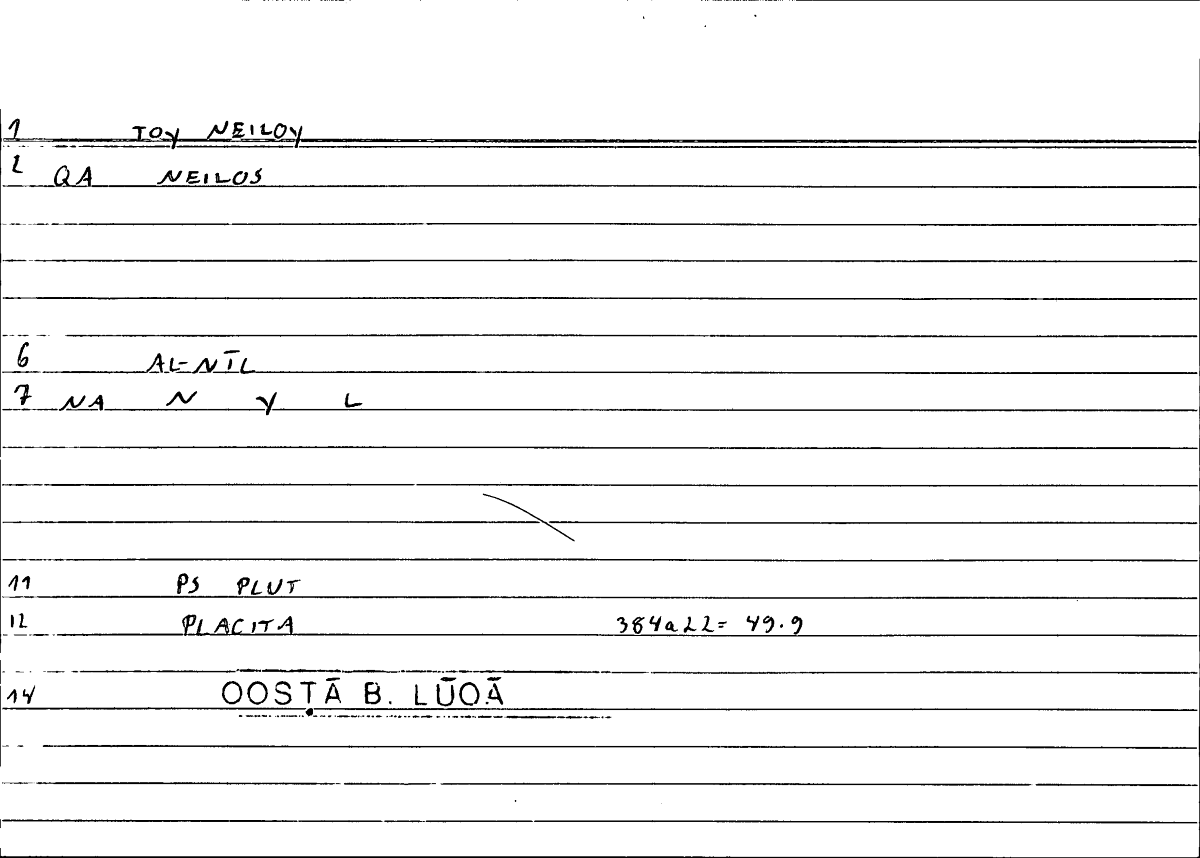 1 TOY NEILOY
2 QA NEILOS
6 AL-NĪL
7 NA N Y L
11 PS PLUT
12 PLACITA 384a22= 49.9
14 OOSṬĀ B. LŪOĀ